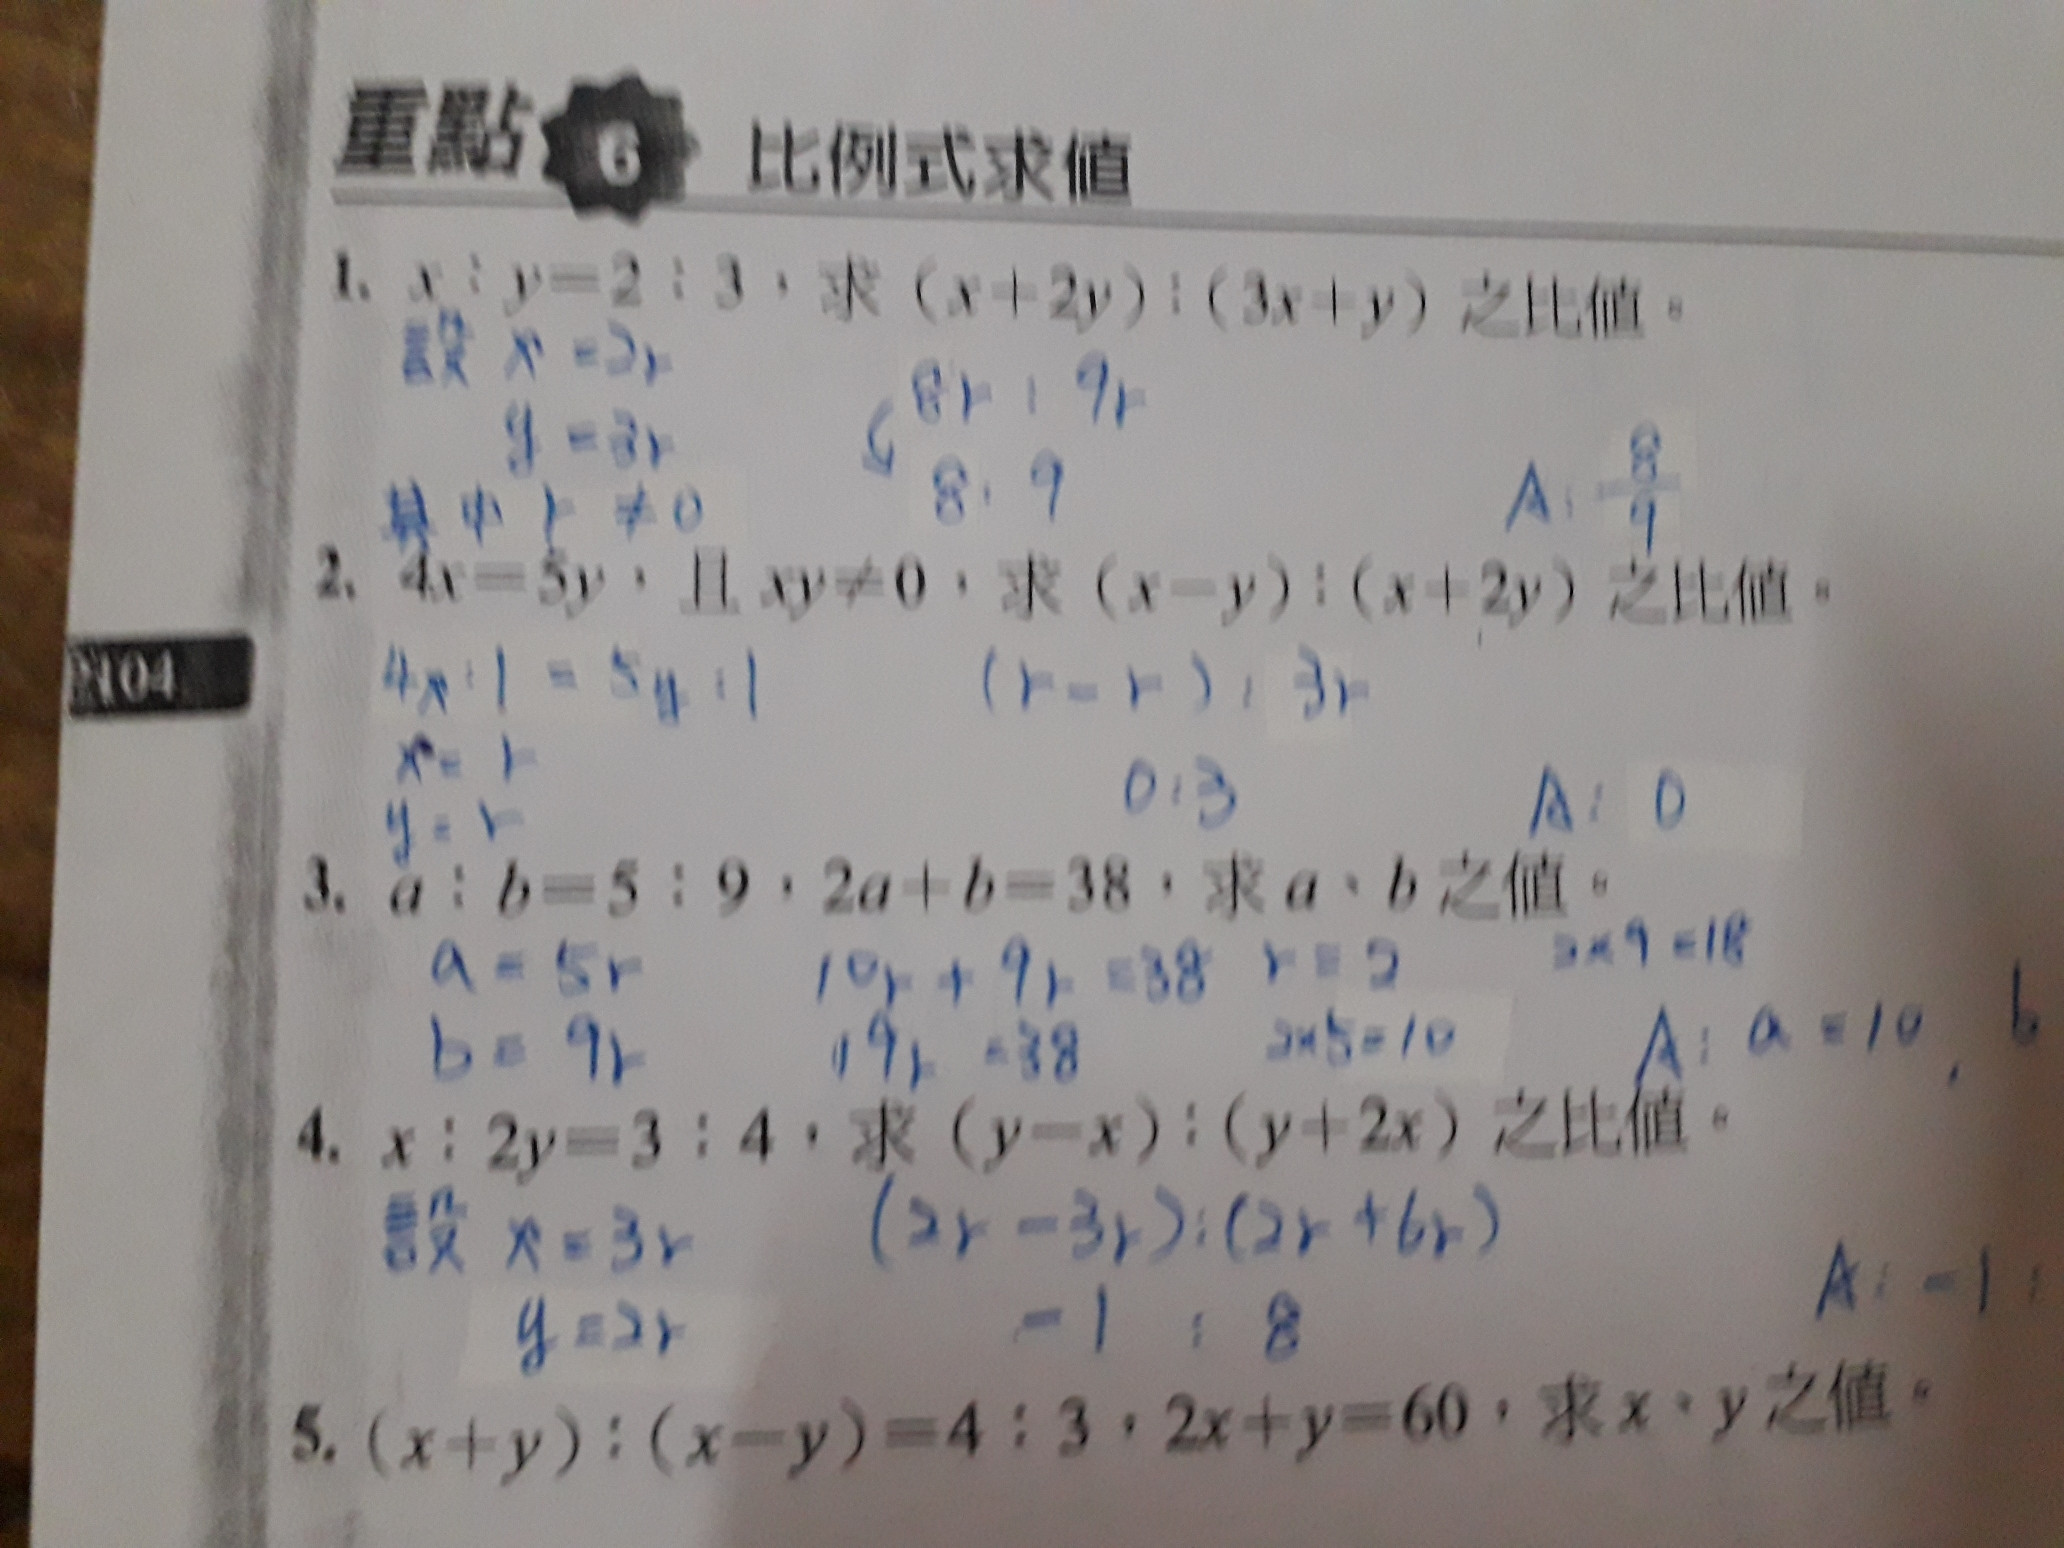 重點 6 比例式求值
1. x：y＝2：3，求（x＋2y）：（3x＋y）之比值。
設 x = 2r
y = 3r
8r : 9r
其中 r ≠ 0
8 : 9
A: 8/9
2. 4x＝5y，且 xy≠0，求（x－y）：（x＋2y）之比值。
N04
4x : 1 = 5y : 1
(r - r) : 3r
x = r
y = r
0 : 3
A: 0
3. a：b＝5：9，2a＋b＝38，求 a、b 之值。
a = 5r
10r + 9r = 38
r = 2
2×9=18
b = 9r
19r = 38
2×5=10
A: a = 10, b
4. x：2y＝3：4，求（y－x）：（y＋2x）之比值。
設 x = 3r
(2r - 3r):(2r + 6r)
y = 2r
-1 : 8
A: -1 :
5.（x＋y）：（x－y）＝4：3，2x＋y＝60，求 x、y 之值。